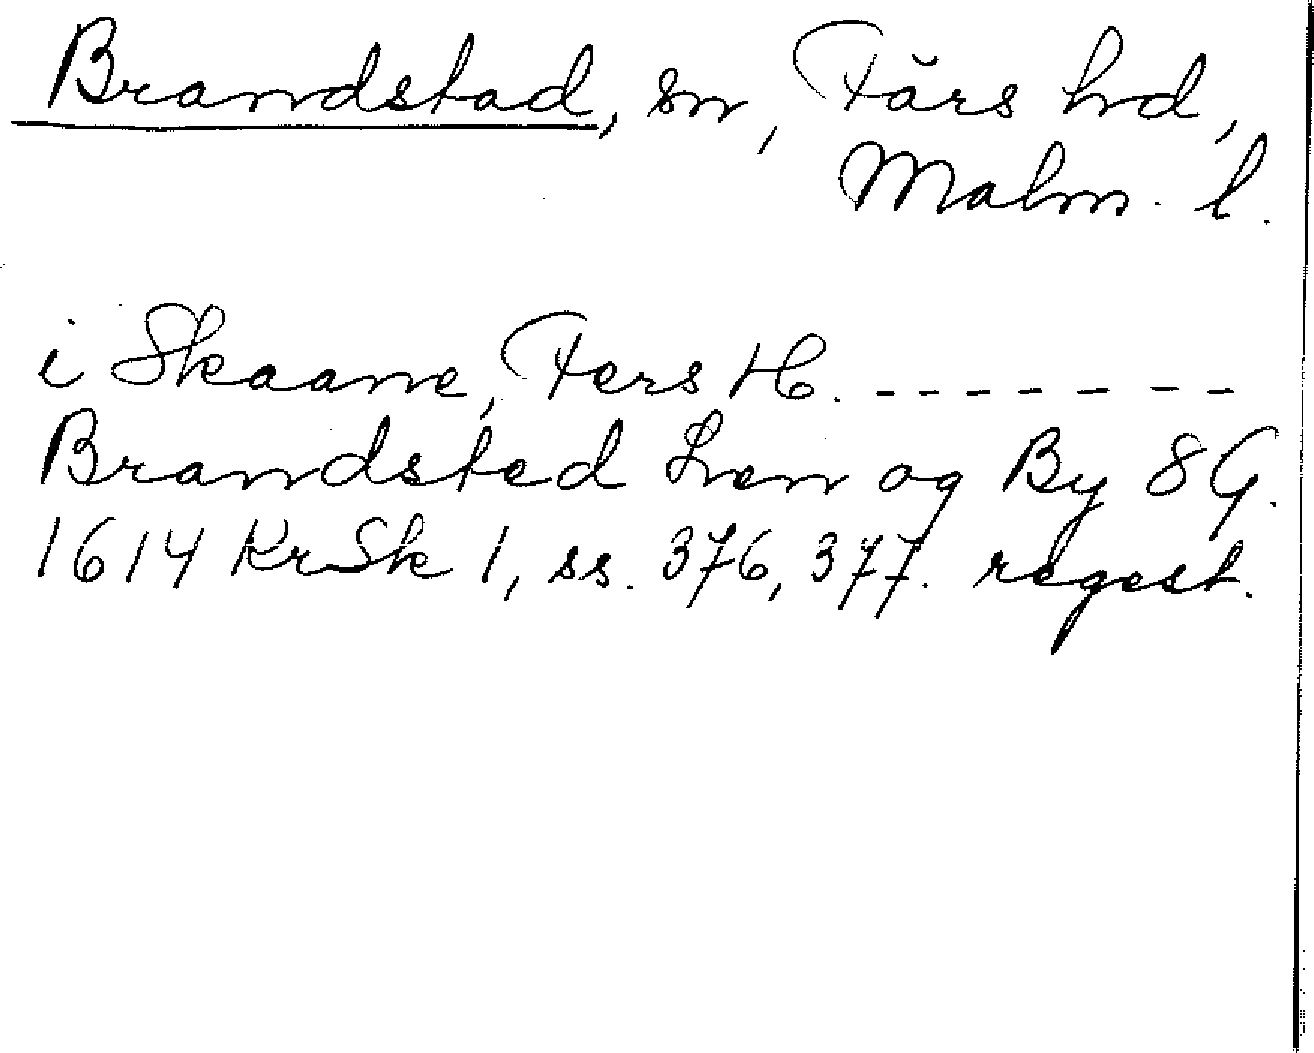 Brandstad, sn, Färs hd,
Malm. l.
i Skaane, Fers H. - - - - - - - -
Brandsted Lren og By 8 G.
1614 KrSk 1, ss. 376, 377. regest.